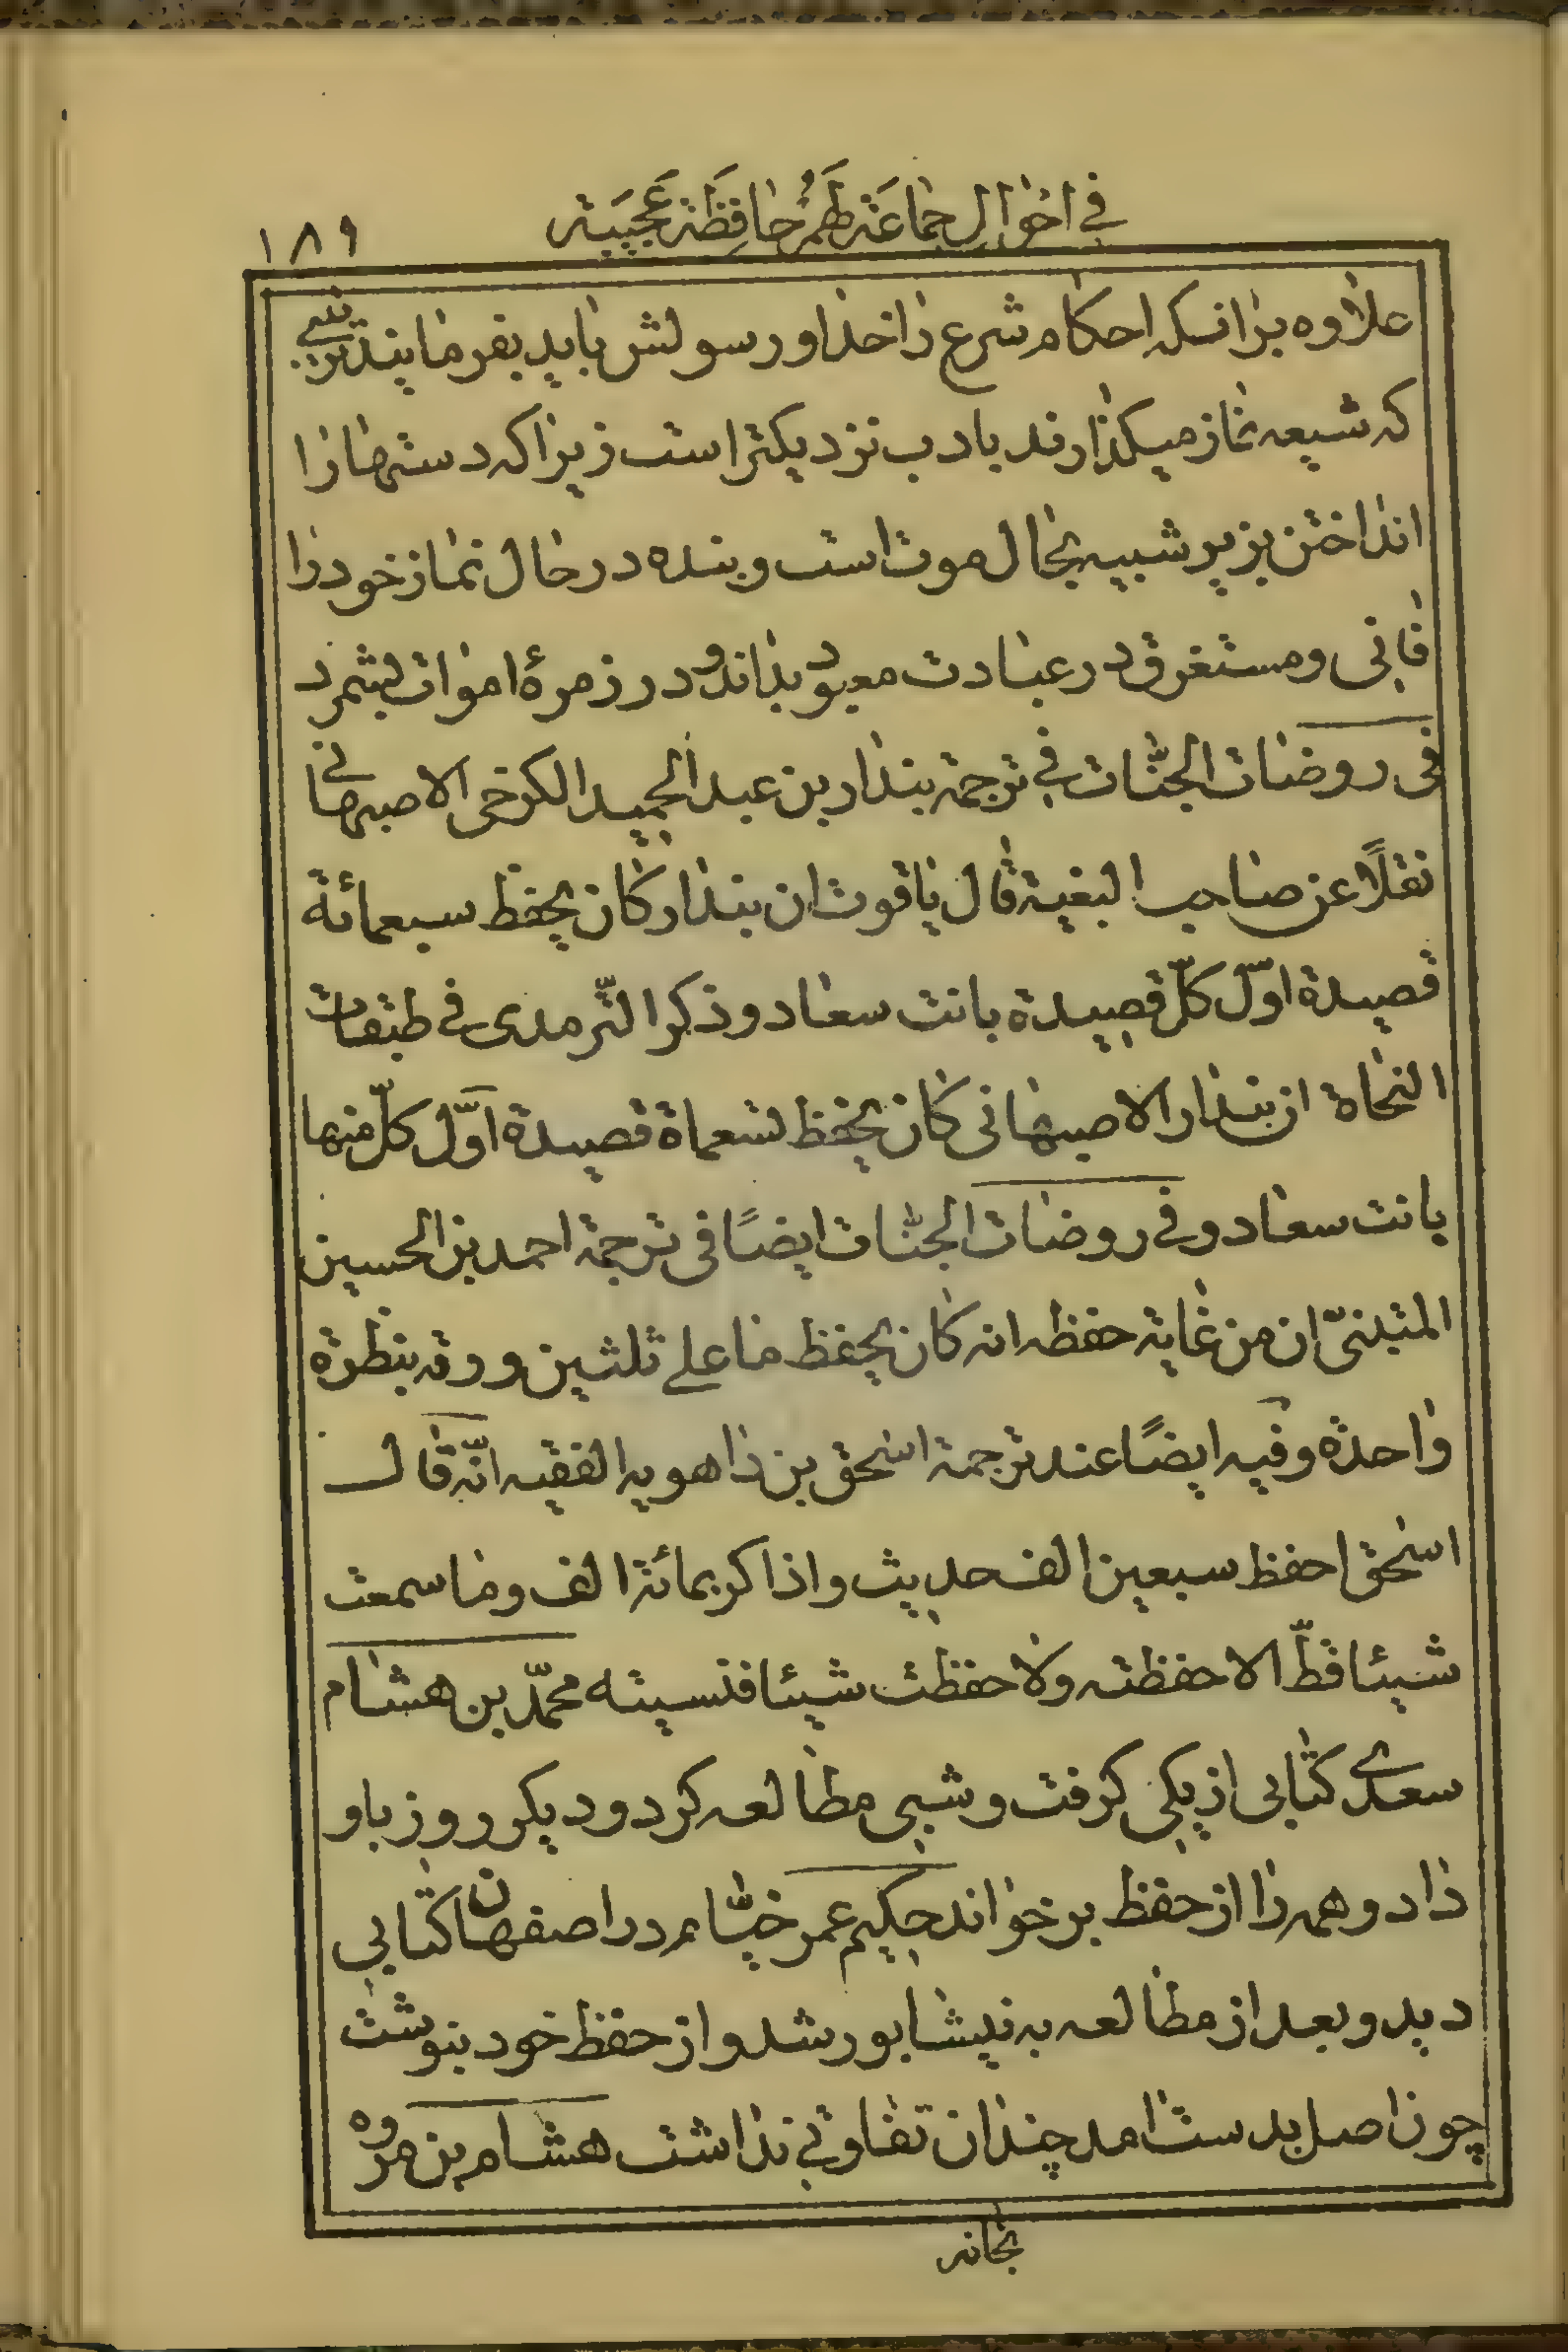 في احوال جماعة لهم حافظة عجيبة
۱۸۹
علاوه برانکه احکام شرع را خدا و رسولش باید بفرمایند ترتیبی
که شیعه نماز میکذارند بادب نزدیکتر است زیرا که دستها را
انداختن بزیر شبیه بحال موت است و بنده در حال نماز خود را
فانی و مستغرق در عبادت معبود بداند و در زمرهٔ اموات بشمرد
فی روضات الجنّات في ترجمة بندار بن عبد الحمید الکرخی الاصبهانی
نقلًا عن صاحب البغیة قال یاقوت ان بندار کان یحفظ سبعمائة
قصیدة اوّل کلّ قصیدة بانت سعاد و ذکر التّرمدی في طبقات
النحاة ان بندار الاصبهانی کان یحفظ تسعماة قصیدة اوّل کلّ منها
بانت سعاد و في روضات الجنّات ایضًا فی ترجمة احمد بن الحسین
المتبنیّ ان من غایة حفظه انه کان یحفظ ما علی ثلثین ورقه بنظرة
واحدة و فیه ایضًا عند ترجمة اسحق بن راهویه الفقیه انّه قال
اسحق احفظ سبعین الف حدیث و اذاکر بمائة الف و ما سمعت
شیئا قطّ الا حفظته ولا حفظت شیئا فنسیته محمّد بن هشام
سعدی کتابی از یکی کرفت و شبی مطالعه کرد و دیکر روز باو
داد و همه را از حفظ بر خواند حکیم عمر خیّام در اصفهان کتابی
دید و بعد از مطالعه به نیشابور شد و از حفظ خود بنوشت
چون اصل بدست امد چندان تفاوتی نداشت هشام بن مروه
بخانه